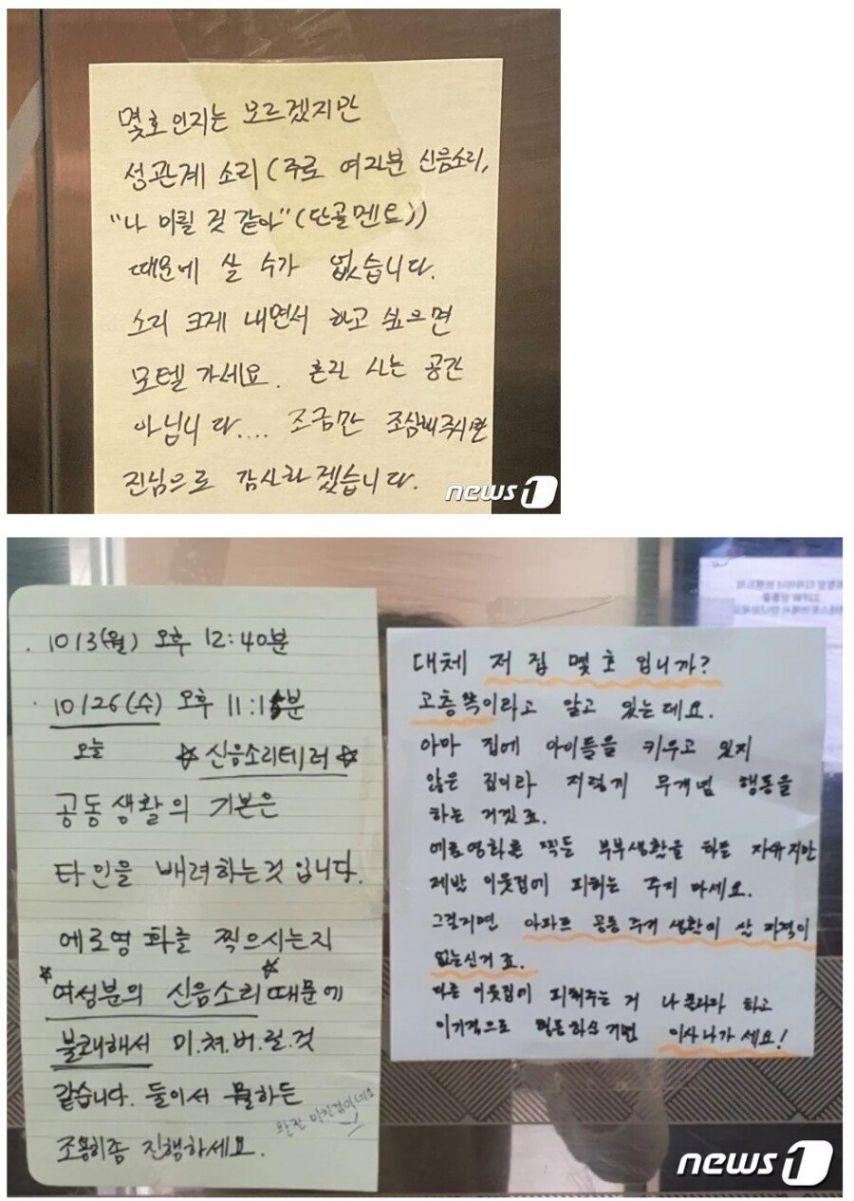 몇호인지는 모르겠지만
성관계 소리 (주로 여자분 신음소리,
"나 미칠 것 같아" (단골멘트))
때문에 살 수가 없습니다.
소리 크게 내면서 하고 싶으면
모텔 가세요. 혼자 사는 공간
아닙니다.... 조금만 조심해주시면
진심으로 감사하겠습니다.
news1
10/3(월) 오후 12:40분
10/26(수) 오후 11:15분
오늘 ☆신음소리테러☆
공동생활의 기본은
타인을 배려하는것 입니다.
에로영화를 찍으시는지
☆여성분의 신음소리☆ 때문에
불쾌해서 미.쳐.버.릴.것
같습니다. 둘이서 뭘하든
조용히좀 진행하세요.
완전 미친집이네요
대체 저 집 몇 호 입니까?
고층쪽이라고 알고 있는데요.
아마 집에 아이들을 키우고 있지
않은 집이라 저렇게 무개념 행동을
하는 거겠죠.
에로영화를 찍든 부부생활을 하든 자유지만
제발 이웃집에 피해는 주지 마세요.
그럴거면 아파트 공동 주거 생활이 살 자격이
없는신거죠.
다른 이웃집이 피해주는 거 나 몰라라 하고
이기적으로 행동하실 거면 이사나가세요!
news1